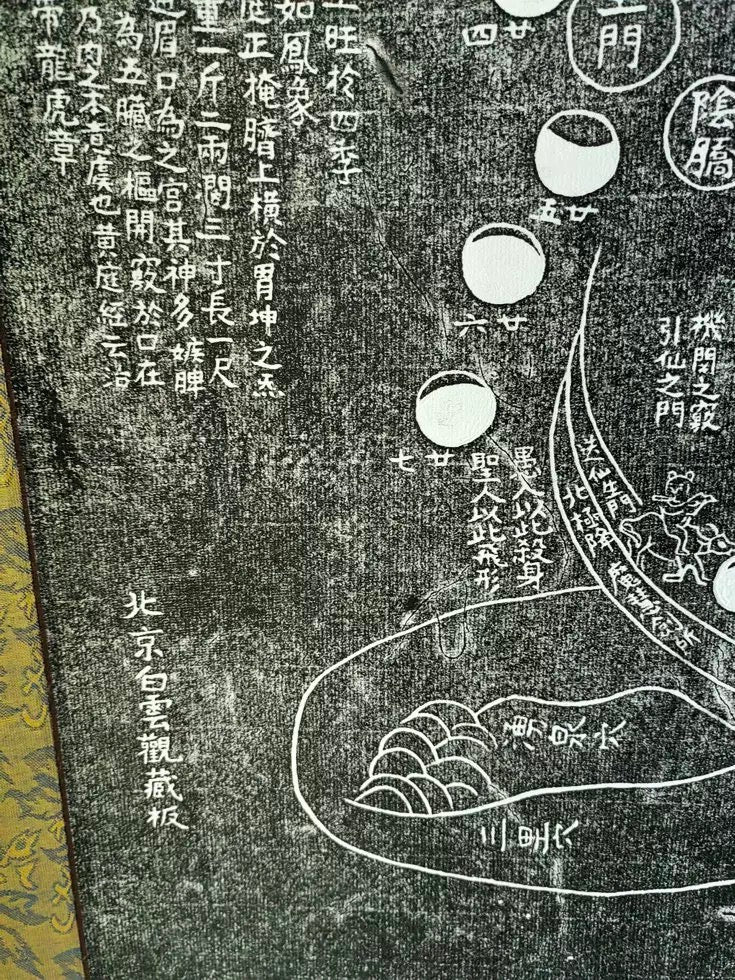 旺於四季
如鳳象
庭正掩臍上橫於胃坤之炁
重一斤二兩闊三寸長一尺
眉口為之官其神多嫉脾
為五臟之樞開竅於口在
乃肉之本意處也黃庭經云治
帝龍虎章
門
陰
廿四
廿五
廿六
廿七
機関之竅
引仙之門
北極降
愚人以此殺身
聖人以此飛形
湧泉穴
三里穴
北京白雲觀藏板